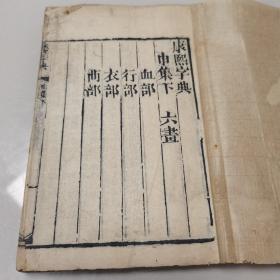 康熙字典
申集下 六畫
血部
行部
衣部
襾部